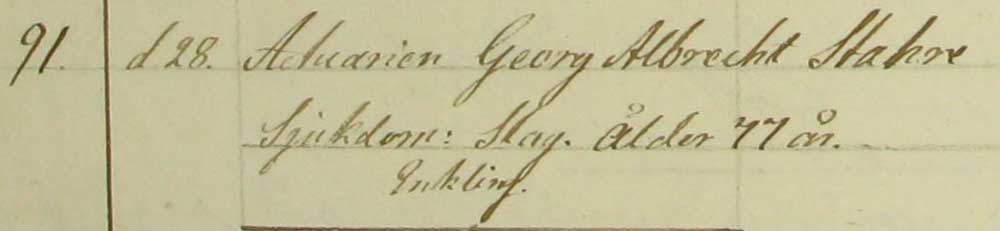 91. d 28. Actuarien Georg Albrecht Stahre
Sjukdom: Slag. Ålder 77 år.
Enkling.